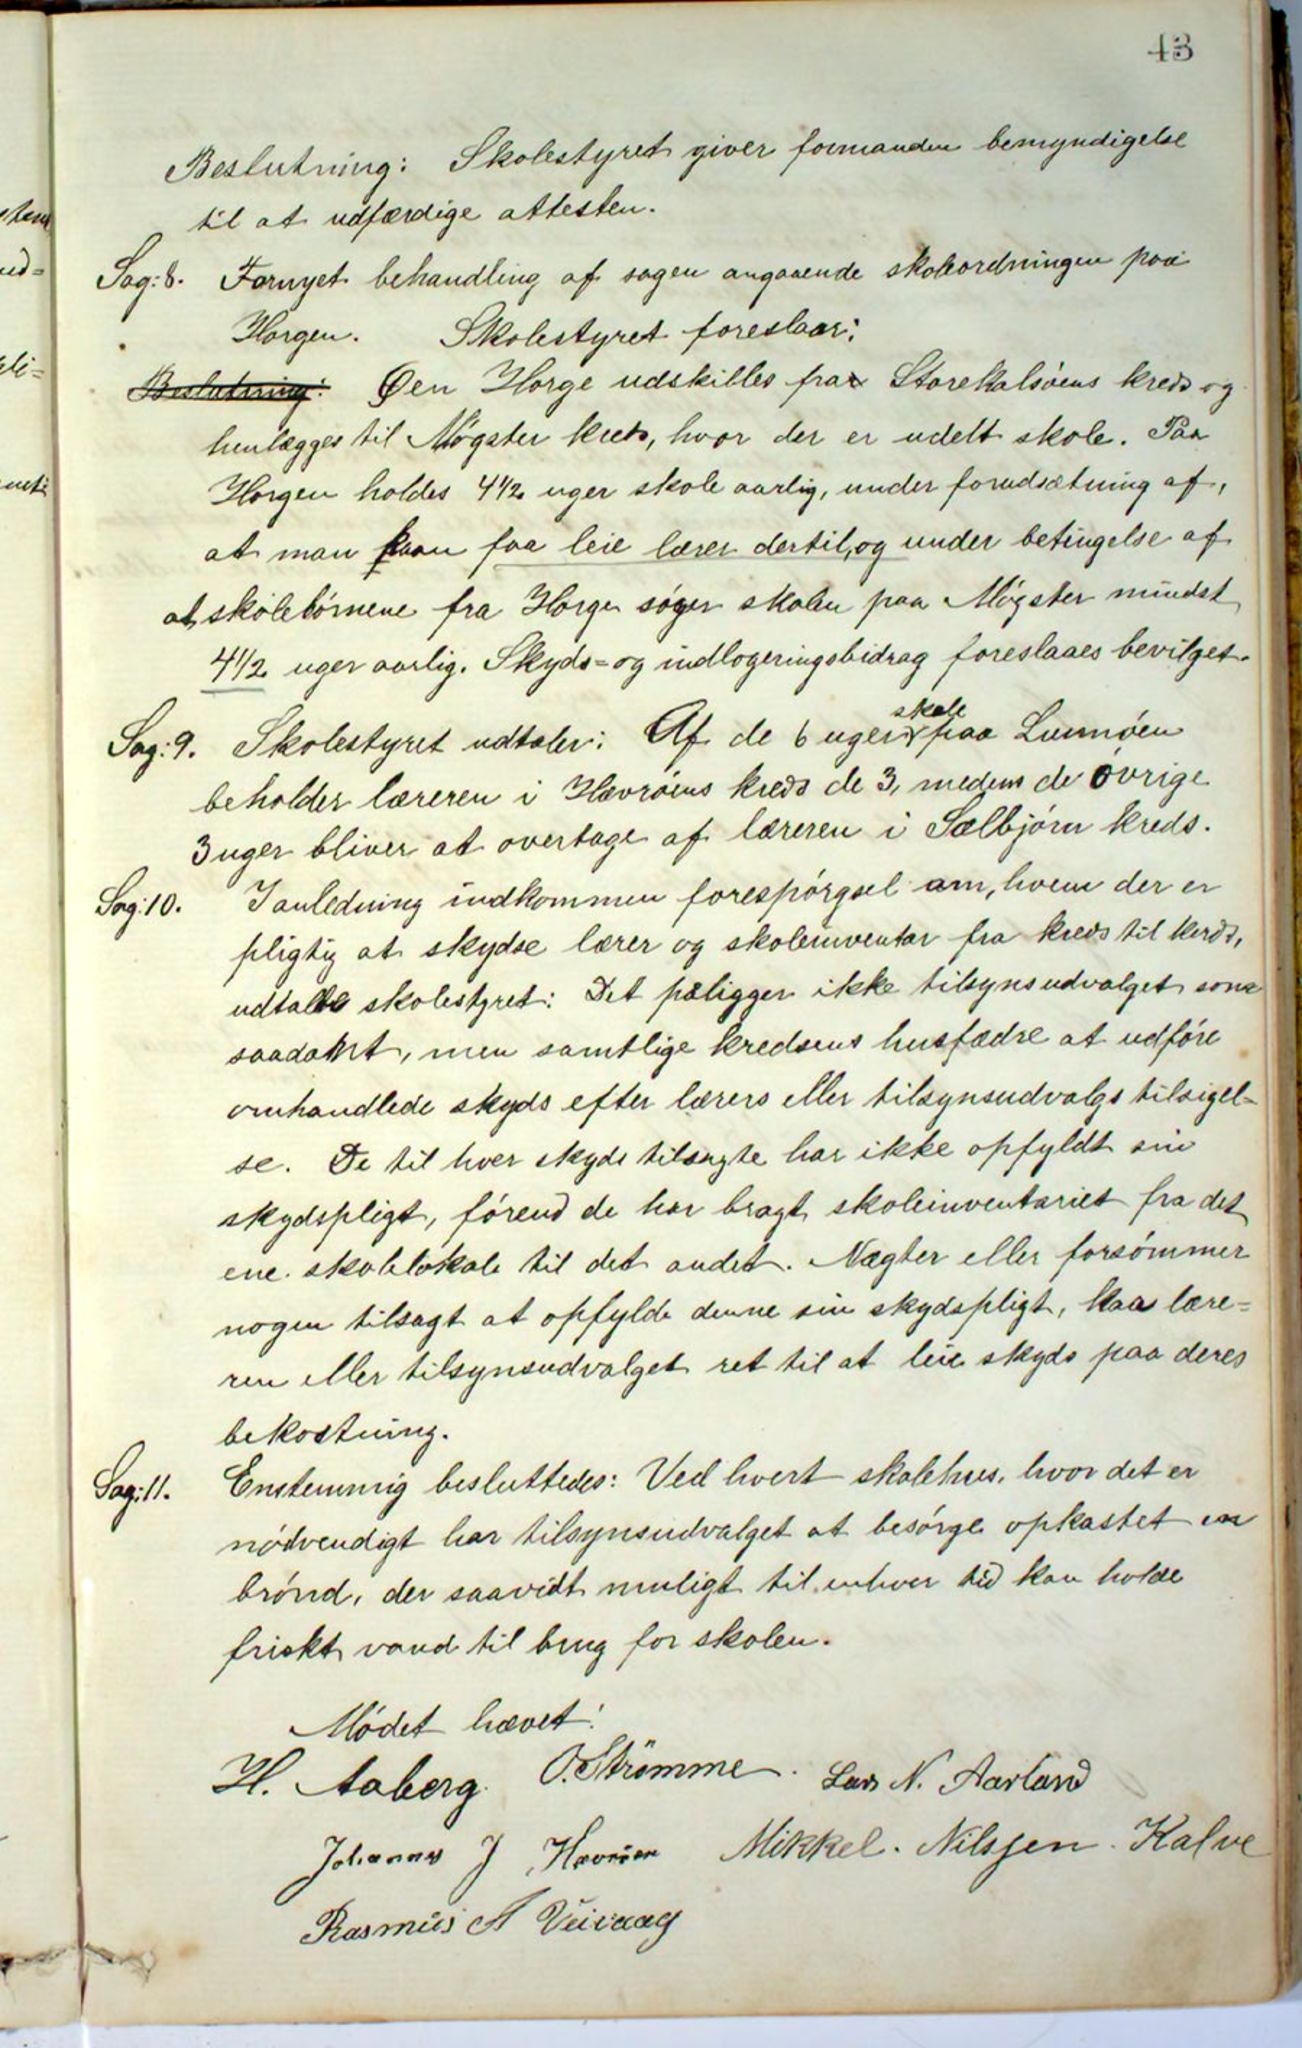 43
Beslutning: Skolestyret giver formanden bemyndigelse
til at udfærdige attesten.
Sag: 8. Fornyet behandling af sagen angaaende skoleordningen paa
Horgen. Skolestyret foreslaar:
Beslutning: Øen Horge udskilles fra Storekalsøens kreds og
henlægges til Møgster kreds, hvor der er udelt skole. Paa
Horgen holdes 4 1/2 uger skole aarlig, under forudsætning af,
at man kan faa leie lærer dertil, og under betingelse af
at skolebørnene fra Horge søger skolen paa Møgster mindst
4 1/2 uger aarlig. Skyds= og indlogeringsbidrag foreslaaes bevilget.
Sag: 9. Skolestyret udtaler: Af de 6 uger skole paa Lunnøen
beholder læreren i Hævrøens kreds de 3, medens de øvrige
3 uger bliver at overtage af læreren i Sælbjørn kreds.
Sag: 10. I anledning indkommen forespørgsel om, hvem der er
pligtig at skydse lærer og skoleinventar fra kreds til kreds,
udtalte skolestyret: Det paaligger ikke tilsynsudvalget som
saadant, men samtlige kredsens husfædre at udføre
omhandlede skyds efter lærers eller tilsynsudvalgs tilsigel-
se. De til hver skyds tilsagte har ikke opfyldt sin
skydspligt, førend de har bragt skoleinventariet fra det
ene skolelokale til det andet. Nægter eller forsømmer
nogen tilsagt at opfylde denne sin skydspligt, har lære=
ren eller tilsynsudvalget ret til at leie skyds paa deres
bekostning.
Sag: 11. Enstemmig besluttedes: Ved hvert skolehus, hvor det er
nødvendigt har tilsynsudvalget at besørge opkastet en
brønd, der saavidt muligt til enhver tid kan holde
friskt vand til brug for skolen.
Mødet hævet!
H. Aaberg. O. Strømme. Lars N. Aarland
Johannes J Hævrøen Mikkel. Nilssen. Kalve
Rasmus A Veivaag